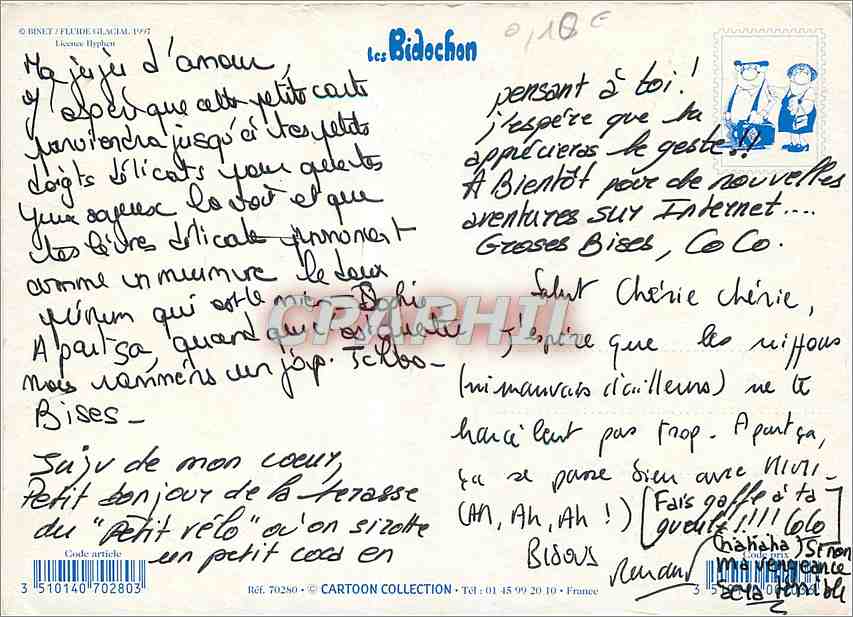 © BINET / FLUIDE GLACIAL 1997
Licence Hyphen
Les Bidochon
0,10 €
Ma juju d'amour,
J'espère que cette petite carte
parviendra jusqu'à tes petits
doigts délicats pour que tes
yeux soyeux la voit et que
tes lèvres délicates prononcent
comme un murmure le doux
prénom qui est le mien Sophie
A part ça, quand
nous ramènes un jap. Tchoo-
Bises -
Juju de mon coeur,
Petit bonjour de la terasse
du "Petit vélo" où on sirote
un petit coca en
pensant à toi !
j'espère que tu
apprécieras le geste !!
A Bientôt pour de nouvelles
aventures sur Internet....
Groses Bises, CoCo.
Salut Chérie chérie,
J'espère que les
(ni mauvais d'ailleurs) ne te
harcèlent pas trop. A part ça,
ça se passe bien avec MIMI-
(Ah, Ah, Ah !) [Fais gaffe à ta
gueule !!!! Colo
(hahaha) Sinon
ma vengeance
sera terrible
Bisous
Renaud
Code article
3 510140 702803
Réf. 70280 • © CARTOON COLLECTION • Tél : 01 45 99 20 10 • France
Code prix
CPAPHIL